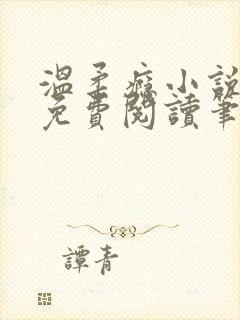 溫柔癮小說
免費閱讀筆
譚青